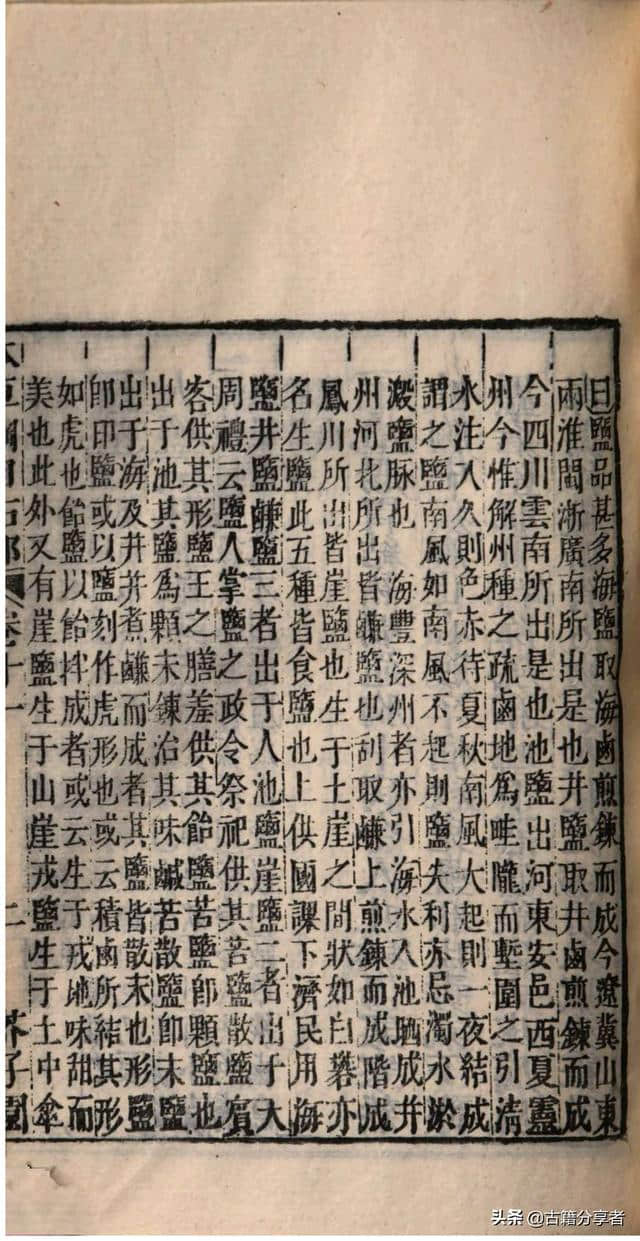 曰鹽品甚多海鹽取海鹵煎鍊而成今遼冀山東
兩淮閩浙廣南所出是也井鹽取井鹵煎鍊而成
今四川雲南所出是也池鹽出河東安邑西夏靈
州今惟解州種之疏鹵地爲畦隴而塹圍之引清
水注入久則色赤待夏秋南風大起則一夜結成
謂之鹽南風如南風不起則鹽失利亦忌濁水淤
澱鹽脉也 海豐深州者亦引海水入池晒成并
州河北所出皆鹻鹽也刮取鹻土煎鍊而成階成
鳳川所出皆崖鹽也生于土崖之間狀如白礬亦
名生鹽此五種皆食鹽也上供國課下濟民用海
鹽井鹽鹻鹽三者出于人池鹽崖鹽二者出于天
周禮云鹽人掌鹽之政令祭祀供其苦鹽散鹽賔
客供其形鹽王之膳羞供其飴鹽苦鹽卽顆鹽也
出于池其鹽爲顆未鍊治其味鹹苦散鹽卽末鹽
出于海及井井煮鹻而成者其鹽皆散末也形鹽
卽印鹽或以鹽刻作虎形也或云積鹵所結其形
如虎也飴鹽以飴拌成者或云生于戎地味甜而
美也此外又有崖鹽生于山崖戎鹽生于土中傘
本草綱目石部 卷十一 二 芥子園
头条 @古籍分享者